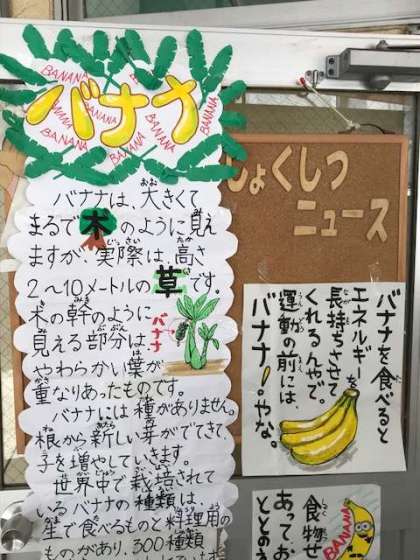 バナナ
BANANA
BANANA
BANANA
BANANA
BANANA
BANANA
BANANA
バナナは、大きくて
まるで木のように見え
ますが、実際は、高さ
2〜10メートルの草です。
木の幹のように
見える部分は
やわらかい葉が
重なりあったものです。
バナナ
バナナには種がありません。
根から新しい芽がでてきて、
子を増やしていきます。
世界中で栽培されて
いるバナナの種類は、
生で食べるものと料理用の
ものがあり、300種類
しょくしつ
ニュース
バナナを食べると
エネルギーを
長持ちさせて
くれるんやで。
運動の前には、
バナナ!やな。
食物せ
あって、お
ととのえ
BANANA